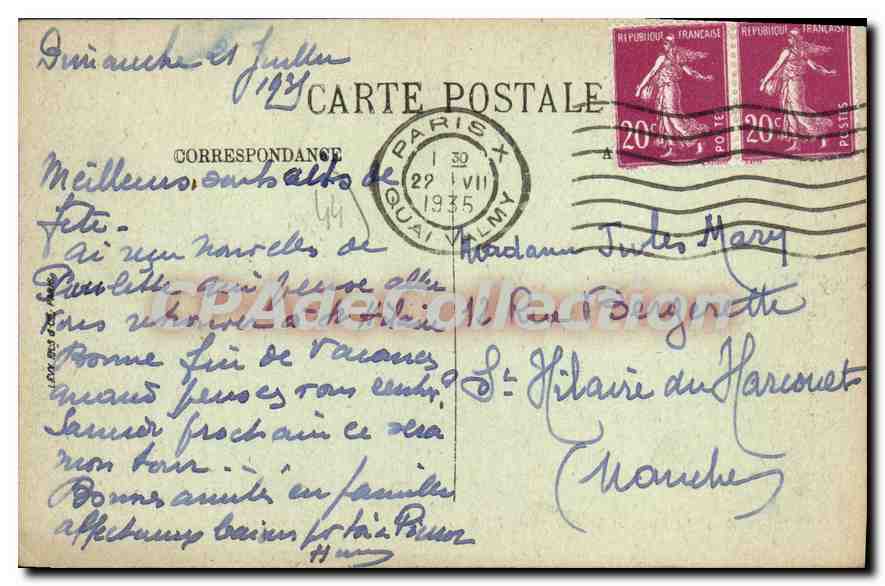 Dimanche 21 Juillet
1935
CARTE POSTALE
CORRESPONDANCE
A
REPUBLIQUE FRANÇAISE
20c POSTES
REPUBLIQUE FRANÇAISE
20c POSTES
PARIS X
1 30
22 VII
1935
QUAI VALMY
44
Meilleurs souhaits de
fête -
ai reçu nouvelles de
Paulette qui pense aller
vous retrouver à St Hilaire
Bonne fin de Vacances
quand pensez vous rentrer?
Samedi prochain ce sera
mon tour...
Bonnes amitiés en famille
affectueux baisers
Madame Jules Mary
12 Rue Bergerette
St Hilaire du Harcouet
(Manche)
CPAdecollection.com
LEVY